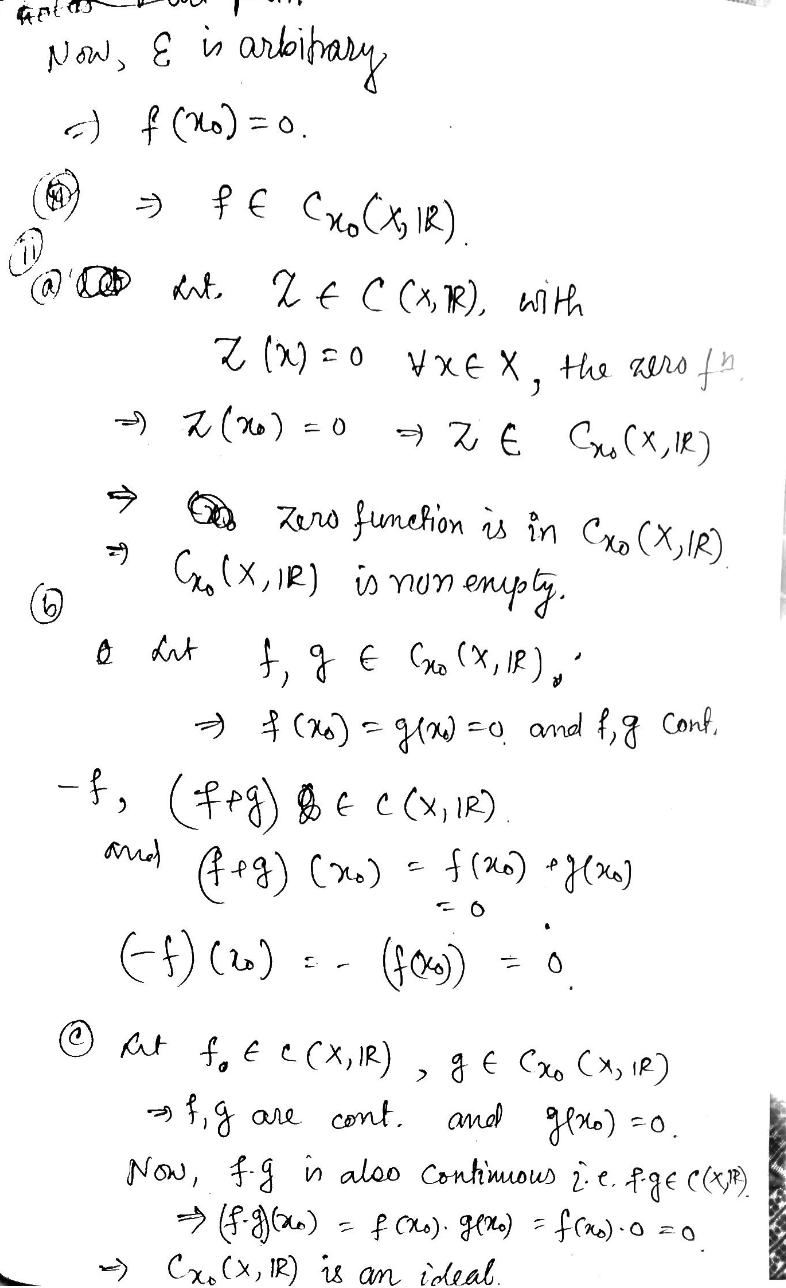 Now, ε is arbitrary
⇒ f(x₀) = 0.
⇒ f ∈ Cx₀(X, IR).
(ii)
(a) Let Z ∈ C(X, IR), with
Z(x) = 0 ∀ x ∈ X, the zero fn.
⇒ Z(x₀) = 0 ⇒ Z ∈ Cx₀(X, IR)
⇒ Zero function is in Cx₀(X, IR).
⇒ Cx₀(X, IR) is non empty.
(b)
Let f, g ∈ Cx₀(X, IR),
⇒ f(x₀) = g(x₀) = 0 and f, g cont.
-f, (f+g) ∈ C(X, IR).
and (f+g)(x₀) = f(x₀) + g(x₀)
= 0
(-f)(x₀) = - (f(x₀)) = 0.
(c) Let f ∈ C(X, IR), g ∈ Cx₀(X, IR)
⇒ f, g are cont. and g(x₀) = 0.
Now, f·g is also continuous i.e. f·g ∈ C(X, IR)
⇒ (f·g)(x₀) = f(x₀)·g(x₀) = f(x₀)·0 = 0
⇒ Cx₀(X, IR) is an ideal.